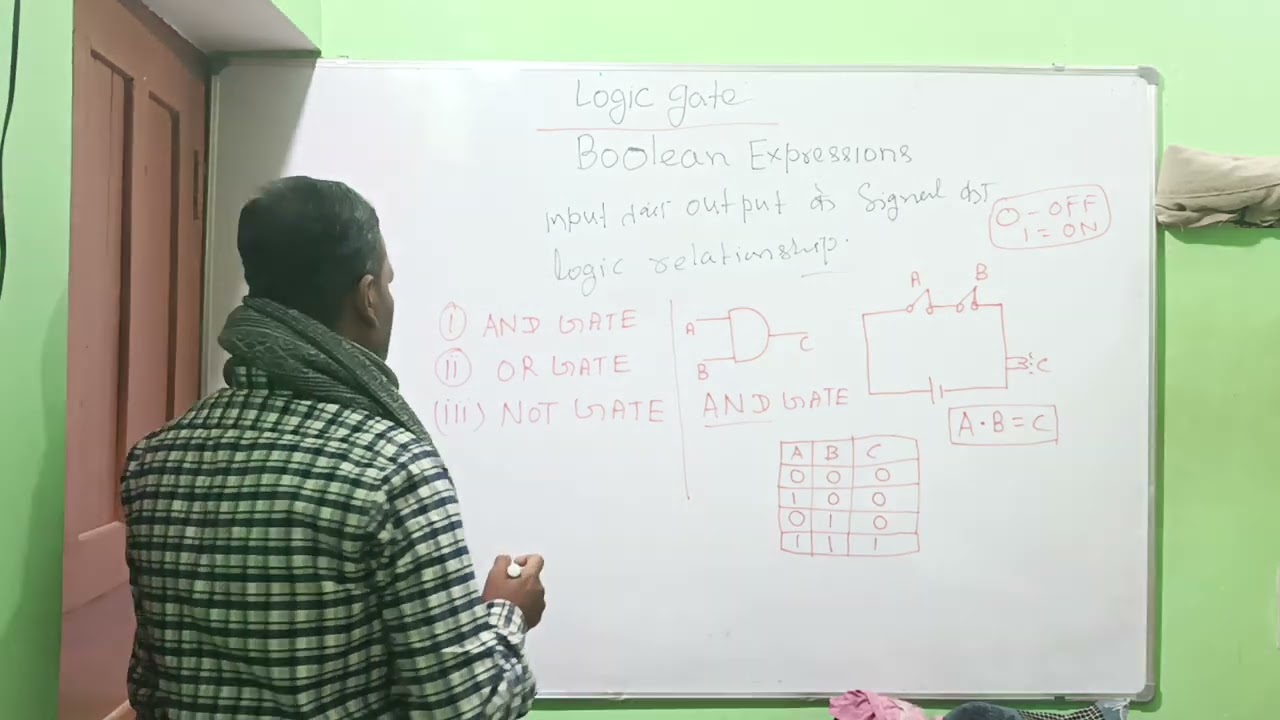 Logic gate
Boolean Expressions
input तथा output के Signal का
logic relationship.
0 - OFF
1 = ON
(i) AND GATE
(ii) OR GATE
(iii) NOT GATE
A
B
C
AND GATE
A B
C
A·B = C
A B C
0 0 0
1 0 0
0 1 0
1 1 1